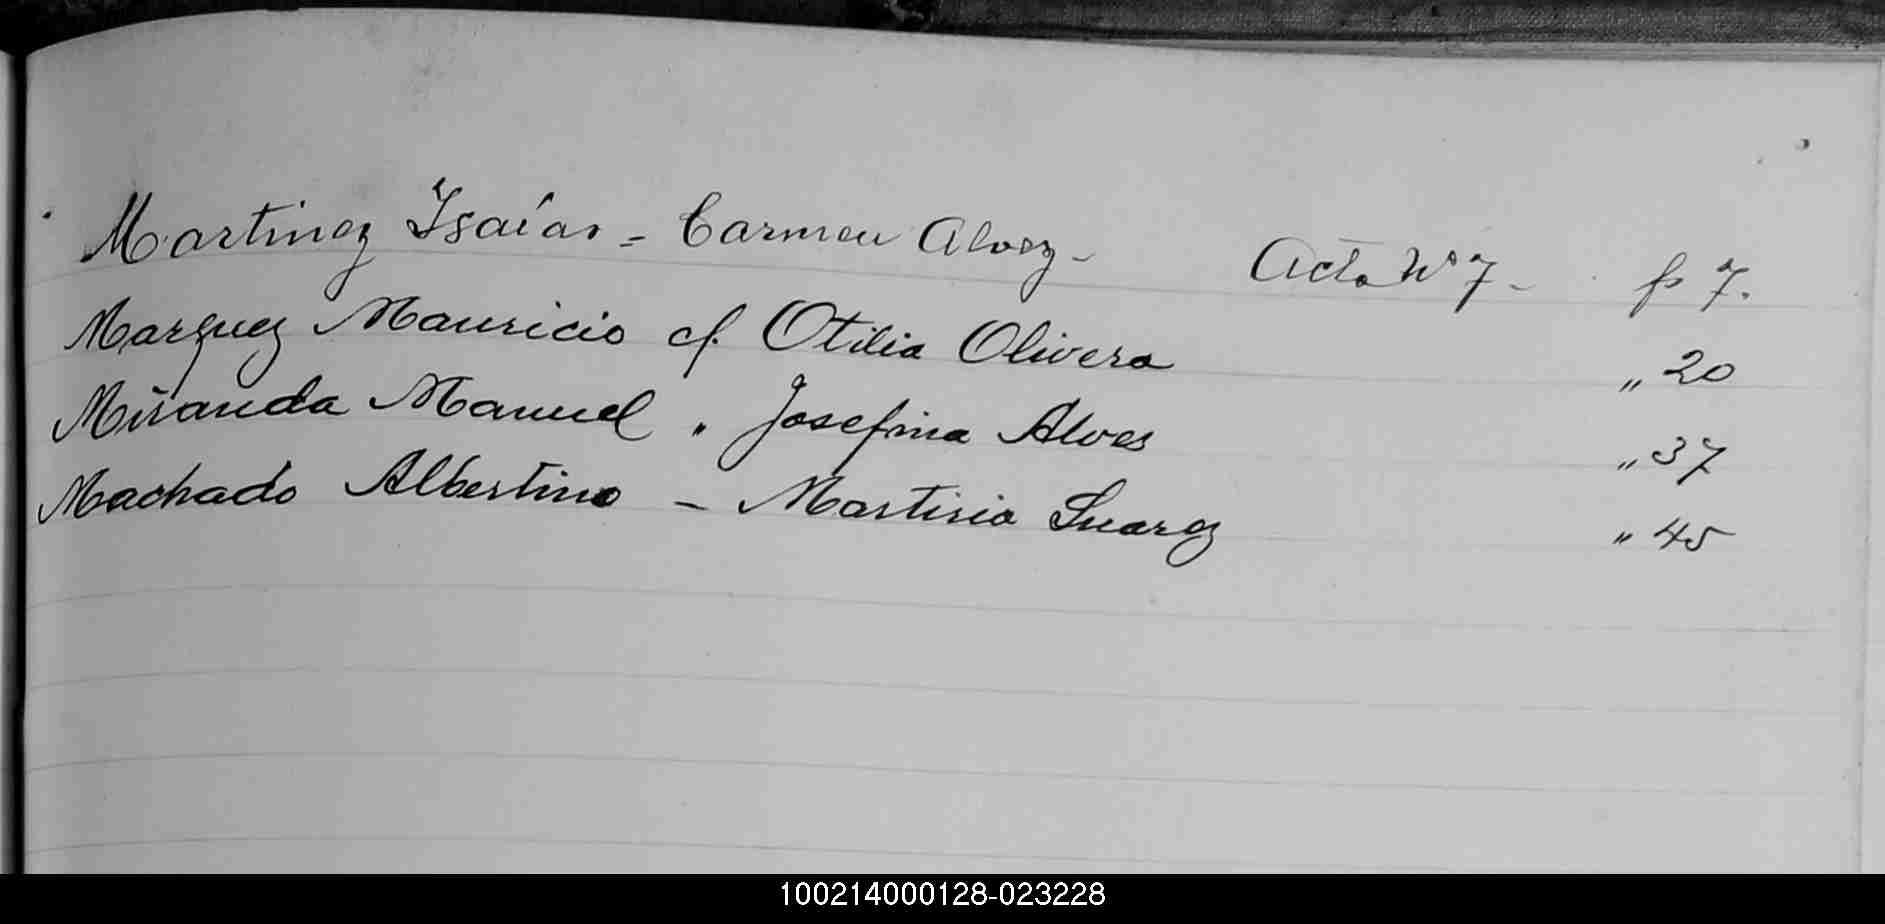 Martinez Isaías - Carmen Alvez - Acta Nº 7 - fs 7.
Marquez Mauricio c/. Otilia Olivera " 20
Miranda Manuel " Josefina Alves " 37
Machado Albertino - Martiria Suarez " 45
100214000128-023228